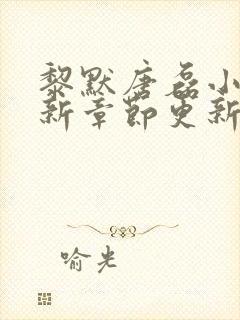 黎默唐磊小
新章节更新
喻光